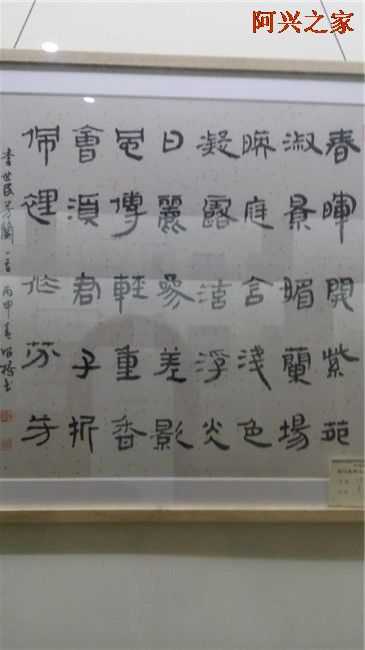 阿兴之家
春暉開紫苑
淑景媚蘭場
映庭含淺色
凝露泫浮光
日麗參差影
風傳輕重香
會須君子折
佩裡作芬芳
李世民芳蘭一首丙申春